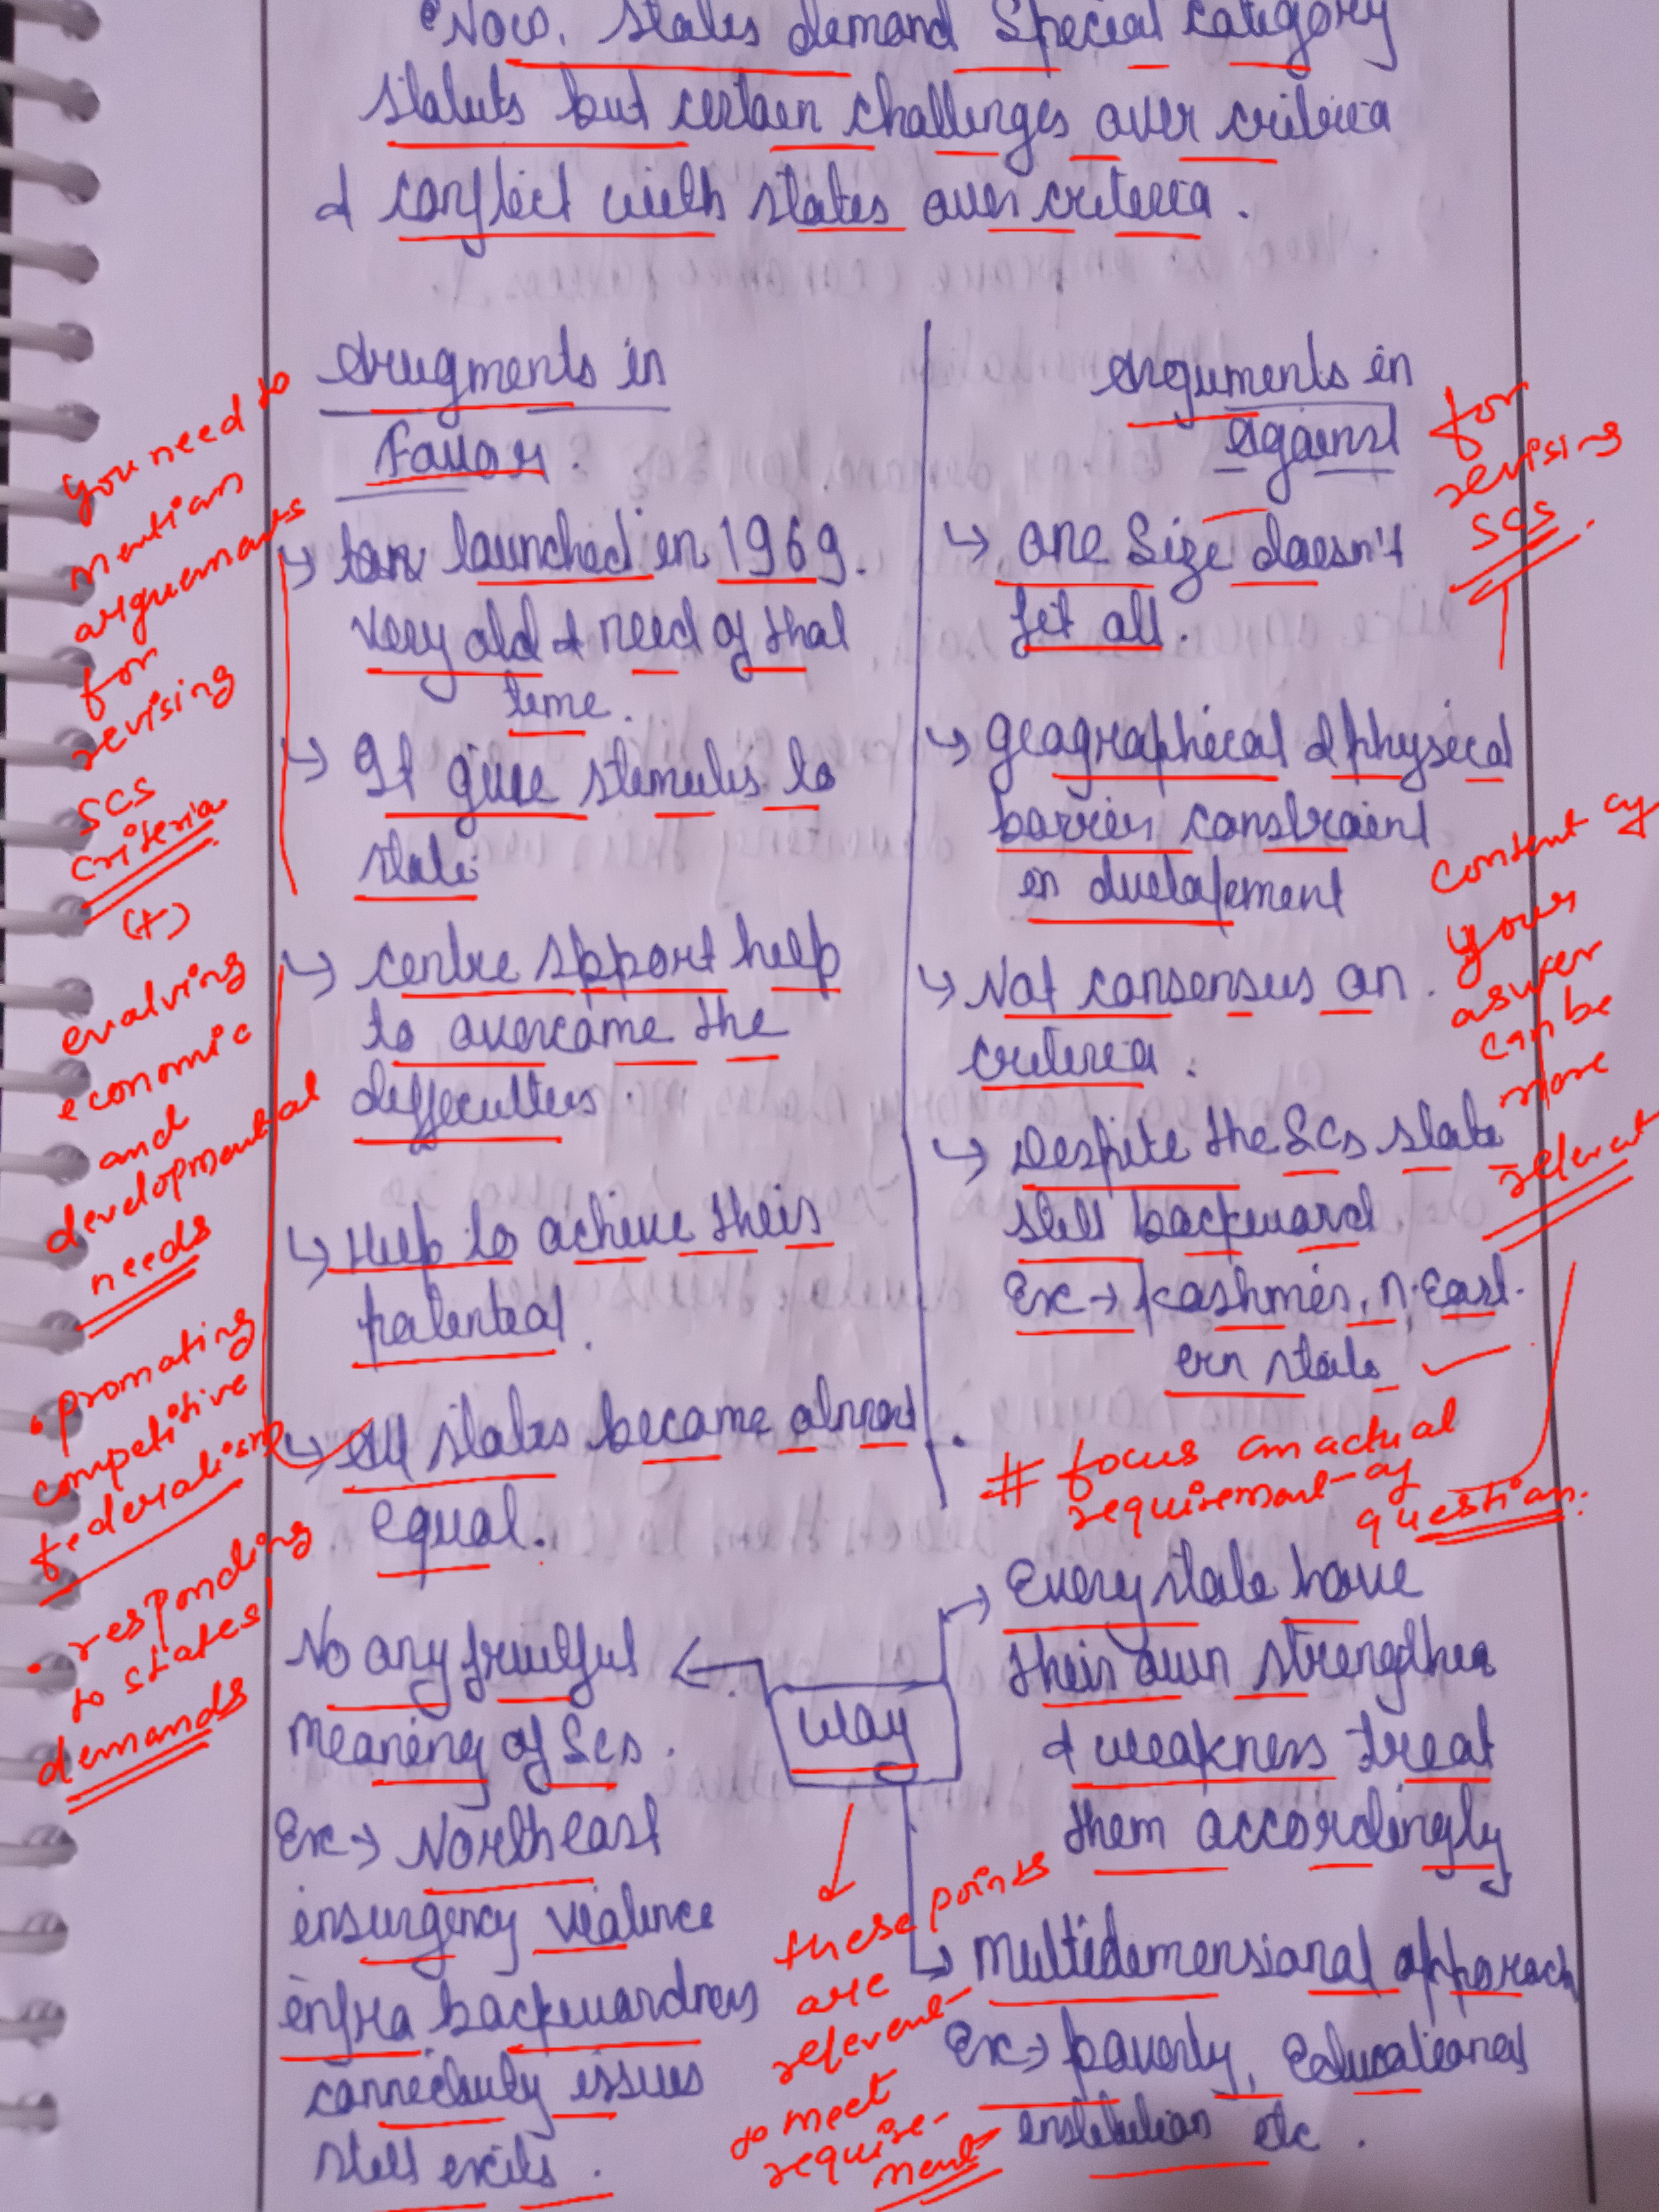 Now, States demand Special category
statuts but certain challenges over criteria
& conflict with states over criteria.
Arugments in
Favor.
↳ launched in 1969.
very old & need of that
time.
↳ It give stimulis to
state
↳ centre spport help
to overcome the
difficulties.
↳ Help to achieve their
potential.
↳ All states became almost
equal.
Arguments in
Against
↳ one Size doesn't
fit all.
↳ geographical & physical
barrier constraint
in development
↳ Not consensus on
criteria.
↳ Despite the SCS state
still backward
Ex → Kashmir, N. East-
ern state
you need to
mention
arguements
for
revising
SCS
criteria
(+)
evolving
economic
and
developmental
needs
• promoting
competitive
federalism
• responding
to states'
demands
for
revising
SCS
content of
your
aswer
can be
more
relevant
# focus on actual
requirement of
question.
No any fruitful
meaning of Scs.
Ex → North east
insurgency violence
infra backwardness
connectivity issues
still exits.
way
Every state have
their own strengther
& weakness treat
them accordingly
Multidimensional apporach
Ex → poverty, Educational
institution etc.
these points
are
relevent
to meet
require-
ment